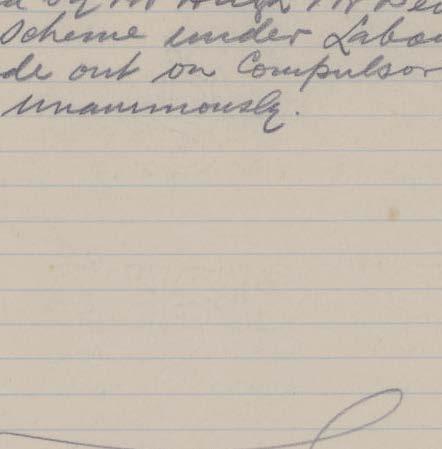 by Mr Hugh Mc
Scheme under Labou
de out on Compulsor
unanimously.